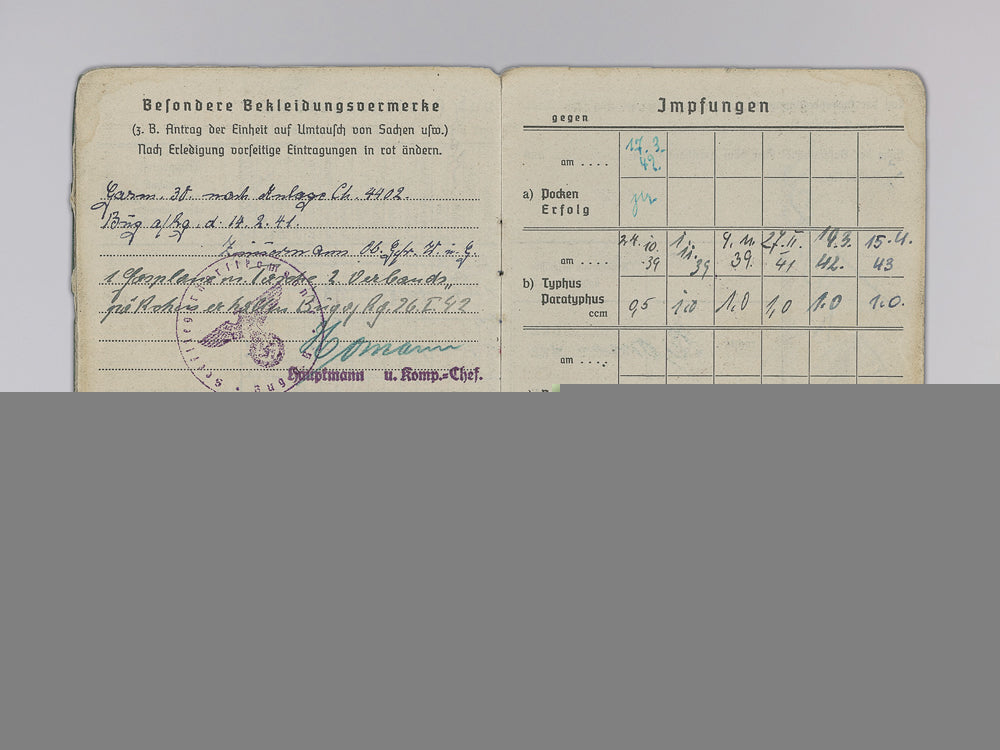 Besondere Bekleidungsvermerke
(z. B. Antrag der Einheit auf Umtausch von Sachen usw.)
Nach Erledigung vorseitige Eintragungen in rot ändern.
Garm. 30. nach Anlage Ch. 4402.
Bug a/Rg. d. 14. 2. 41.
Ob. Gfr. W. u. G.
1 Gasplane m. Tasche 2 Verbands„
päckchen erhalten Bug a/ Rg. 26. I 42
Homann
Hauptmann u. Komp.-Chef.
Impfungen
gegen
am . . . . 17. 3. 42.
a) Pocken
Erfolg
am . . . . 24. 10. 39 1. 11. 39 9. 11. 39. 27. II. 41 19.3. 42. 15. 4. 43
b) Typhus
Paratyphus
ccm 0,5 1.0 1,0 1,0 1.0 1.0.
am . . . .